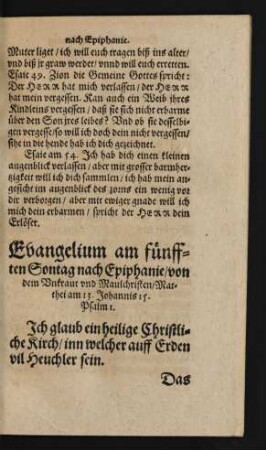 nach Epiphanie.
Muter liget / ich will euch tragen biß ins alter /
vnd biß jr graw werdet / vnnd will euch erretten.
Esaie 49. Zion die Gemeine Gottes spricht:
Der HERR hat mich verlassen / der HERR
hat mein vergessen. Kan auch ein Weib jhres
Kindleins vergessen / daß sie sich nicht erbarme
über den Son jres leibes? Vnd ob sie desselbi-
gen vergesse / so will ich doch dein nicht vergessen /
sihe in die hende hab ich dich gezeichnet.
Esaie am 54. Ich hab dich einen kleinen
augenblick verlassen / aber mit grosser barmher-
tzigkeit will ich dich sammlen / ich hab mein an-
gesicht im augenblick des zorns ein wenig vor
dir verborgen / aber mit ewiger gnade will ich
mich dein erbarmen / spricht der HERR dein
Erlöser.
Evangelium am fünff-
ten Sontag nach Epiphanie / von
dem Vnkraut vnd Maulchristen / Mat-
thei am 13. Johannis 15.
Psalm 1.
Ich glaub ein heilige Christli-
che Kirch / inn welcher auff Erden
vil Heuchler sein.
Das